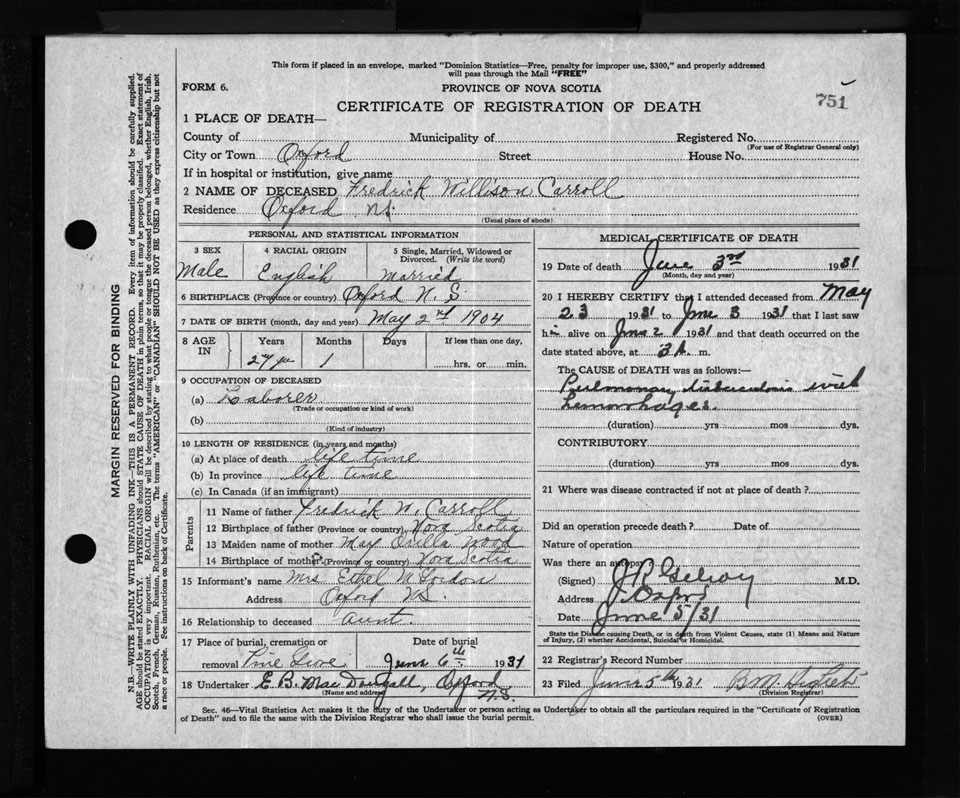 This form if placed in an envelope, marked "Dominion Statistics—Free, penalty for improper use, $300," and properly addressed
will pass through the Mail "FREE"
FORM 6.
PROVINCE OF NOVA SCOTIA
751
CERTIFICATE OF REGISTRATION OF DEATH
1 PLACE OF DEATH—
County of Municipality of Registered No.
(For use of Registrar General only)
City or Town Oxford Street House No.
If in hospital or institution, give name
2 NAME OF DECEASED Fredrick Willison Carroll
Residence Oxford N.S.
(Usual place of abode)
PERSONAL AND STATISTICAL INFORMATION
3 SEX 4 RACIAL ORIGIN 5 Single, Married, Widowed or
Divorced. (Write the word)
Male English Married
6 BIRTHPLACE (Province or country) Oxford N.S.
7 DATE OF BIRTH (month, day and year) May 2nd 1904
8 AGE IN Years Months Days If less than one day,
27 yrs 1 hrs. or min.
9 OCCUPATION OF DECEASED
(a) Laborer
(Trade or occupation or kind of work)
(b)
(Kind of industry)
10 LENGTH OF RESIDENCE (in years and months)
(a) At place of death life time
(b) In province life time
(c) In Canada (if an immigrant)
Parents
11 Name of father Fredrick W. Carroll
12 Birthplace of father (Province or country) Nova Scotia
13 Maiden name of mother May Orilla Wood
14 Birthplace of mother (Province or country) Nova Scotia
15 Informant's name Mrs Ethel M Gordon
Address Oxford N.S.
16 Relationship to deceased Aunt.
17 Place of burial, cremation or Date of burial
removal Pine Grove June 6th 1931
18 Undertaker E. B. MacDougall, Oxford
(Name and address) N.S.
MEDICAL CERTIFICATE OF DEATH
19 Date of death June 3rd 1931
(Month, day and year)
20 I HEREBY CERTIFY that I attended deceased from May
23 1931 to June 3 1931 that I last saw
him alive on June 2 1931 and that death occurred on
date stated above, at 3 A. m.
The CAUSE OF DEATH was as follows:—
Pulmonary tuberculosis with
hemorrhages.
(duration) yrs mos dys.
CONTRIBUTORY
(duration) yrs. mos. dys.
21 Where was disease contracted if not at place of death?
Did an operation precede death? Date of
Nature of operation
Was there an autopsy
(Signed) M.D.
Address Oxford
Date June 5/31
State the Disease causing Death, or in death from Violent Causes, state (1) Means and Nature
of Injury, (2) whether Accidental, Suicidal or Homicidal.
22 Registrar's Record Number
23 Filed June 5th 1931 B.M.
(Division Registrar)
Sec. 46—Vital Statistics Act makes it the duty of the Undertaker or person acting as Undertaker to obtain all the particulars required in the "Certificate of Registration
of Death" and to file the same with the Division Registrar who shall issue the burial permit.
(OVER)
MARGIN RESERVED FOR BINDING
N.B.—WRITE PLAINLY WITH UNFADING INK—THIS IS A PERMANENT RECORD. Every item of information should be carefully supplied.
AGE should be stated EXACTLY. PHYSICIANS should STATE CAUSE OF DEATH in plain terms, so that it may be properly classified. Exact statement of
OCCUPATION is very important. RACIAL ORIGIN will be described by stating to what people or tongue the deceased person belonged, whether English, Irish,
Scotch, French, German, Russian, Ruthenian, etc. The terms "AMERICAN" or "CANADIAN" SHOULD NOT BE USED as they express citizenship but not
a race or people. See instructions on back of Certificate.